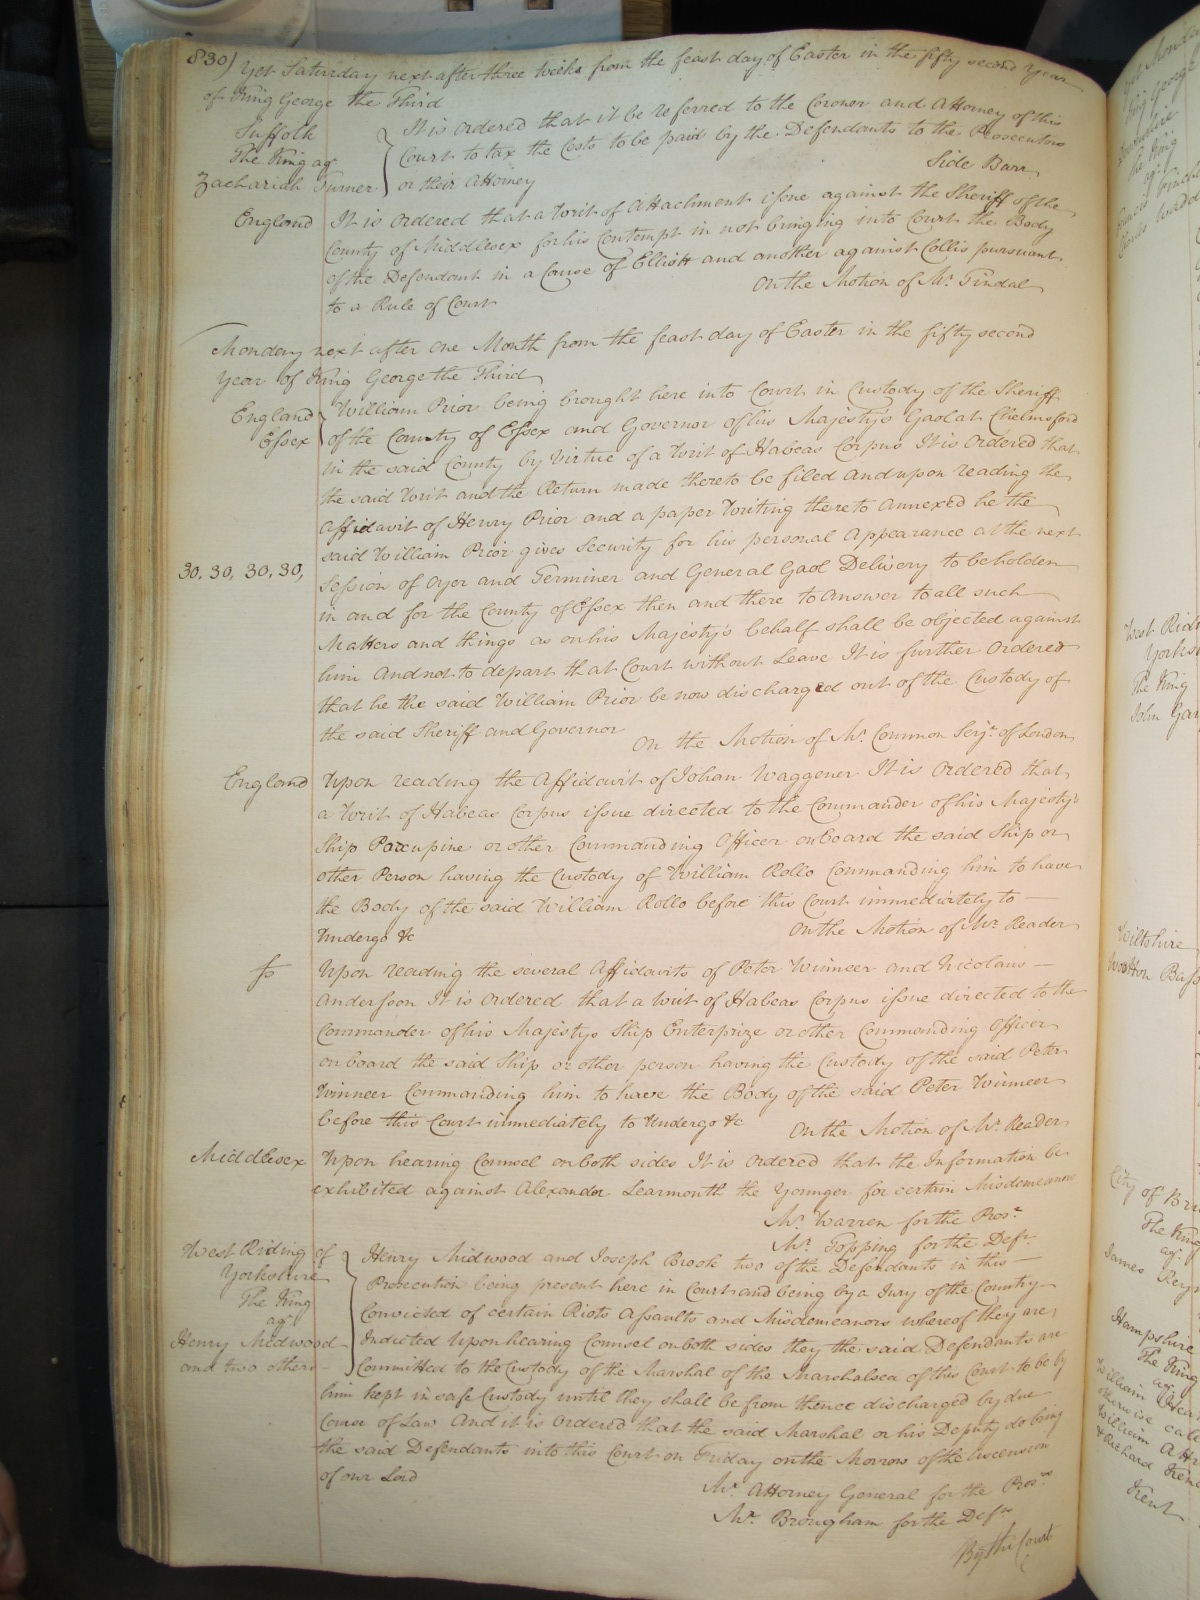 830/ Yet Saturday next after three weeks from the feast day of Easter in the fifty second Year
of King George the Third
Suffolk
The King agt
Zachariah Turner
It is ordered that it be referred to the Coroner and Attorney of this
Court to tax the Costs to be paid by the Defendants to the Prosecutors
or their Attorney
Side Barr
England
It is ordered that a Writ of Attachment issue against the Sheriff of the
County of Middlesex for his Contempt in not bringing into Court the Body
of the Defendant in a Cause of Elliott and another against Collis pursuant
to a Rule of Court
On the Motion of Mr. Tindal
Monday next after one Month from the feast day of Easter in the fifty second
Year of King George the Third
England
Essex
William Prior being brought here into Court in Custody of the Sheriff
of the County of Essex and Governor of his Majesty's Gaol at Chelmsford
in the said County by virtue of a Writ of Habeas Corpus It is ordered that
the said Writ and the Return made thereto be filed And upon reading the
Affidavit of Henry Prior and a paper Writing thereto annexed he the
said William Prior gives Security for his personal Appearance at the next
30, 30, 30, 30,
Session of Oyer and Terminer and General Gaol Delivery to be holden
in and for the County of Essex then and there to Answer to all such
Matters and things as on his Majesty's behalf shall be objected against
him And not to depart that Court without Leave It is further ordered
that he the said William Prior be now discharged out of the Custody of
the said Sheriff and Governor
On the Motion of Mr. Common Serjt. of London
England
Upon reading the Affidavit of Johan Waggener It is ordered that
a Writ of Habeas Corpus issue directed to the Commander of his Majesty's
Ship Porcupine or other Commanding Officer on board the said Ship or
other Person having the Custody of William Rollo Commanding him to have
the Body of the said William Rollo before this Court immediately to
Undergo &c
On the Motion of Mr. Reader
fs
Upon reading the several Affidavits of Peter Winneer and Nicolaus
Andersson It is ordered that a Writ of Habeas Corpus issue directed to the
Commander of his Majestys Ship Enterprize or other Commanding Officer
on board the said Ship or other person having the Custody of the said Peter
Winneer Commanding him to have the Body of the said Peter Winneer
before this Court immediately to Undergo &c
On the Motion of Mr. Reader
Middlesex
Upon hearing Counsel on both sides It is ordered that the Information be
exhibited against Alexander Learmonth the Younger for certain Misdemeanors
Mr. Warren for the Prosr.
Mr. Topping for the Deft.
West Riding of
Yorkshire
The King
agt
Henry Midwood
and two others
Henry Midwood and Joseph Brook two of the Defendants in this
Prosecution being present here in Court and being by a Jury of the Country
Convicted of certain Riots Assaults and Misdemeanors whereof they are
Indicted Upon hearing Counsel on both sides they the said Defendants are
Committed to the Custody of the Marshal of the Marshalsea of this Court to be by
him kept in safe Custody until they shall be from thence discharged by due
Course of Law And it is ordered that the said Marshal or his Deputy do bring
the said Defendants into this Court on Friday on the Morrow of the Ascension
of our Lord
Mr. Attorney General for the Prosrs
Mr. Brougham for the Defts
By the Court
West Ridi
Yorksh
The King
John Gar
Wiltshire
Wootton Bass
City of Bri
The King
agt
James Rey
Hampshire
The King
agt
William Hea
otherwise call
William Att
& Richard
Kent